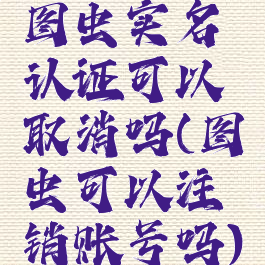 图虫实名
认证可以
取消吗(图
虫可以注
销账号吗)